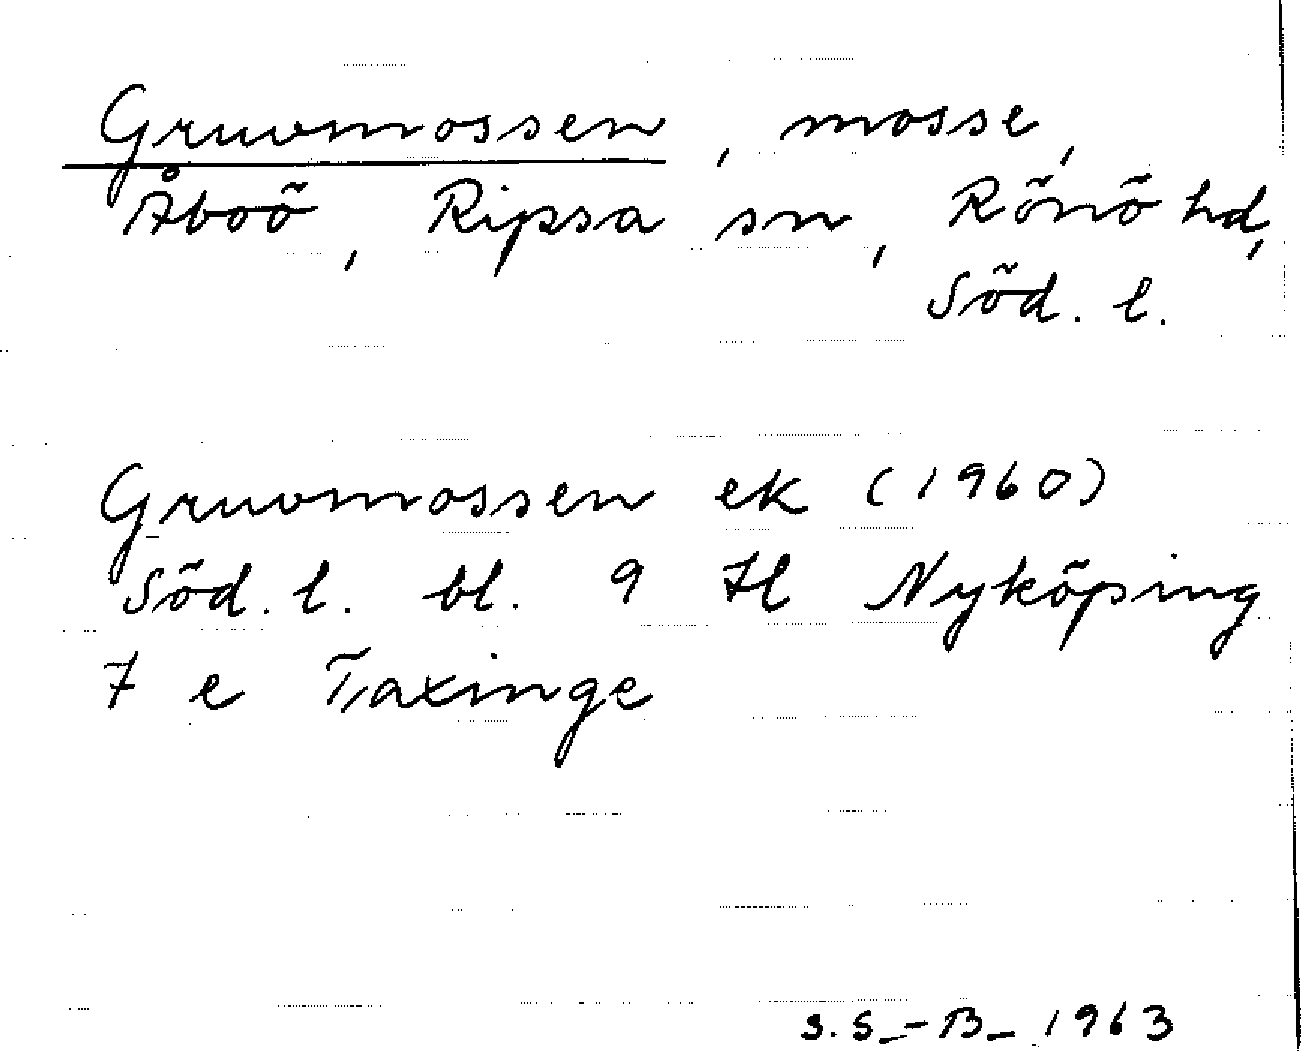 Gruvmossen, mosse,
Åboö, Ripsa sn, Rönö hd,
Söd. l.
Gruvmossen ek (1960)
Söd. l. bl. 9 Hl Nyköping
7 e Taxinge
S.S.-B- 1963